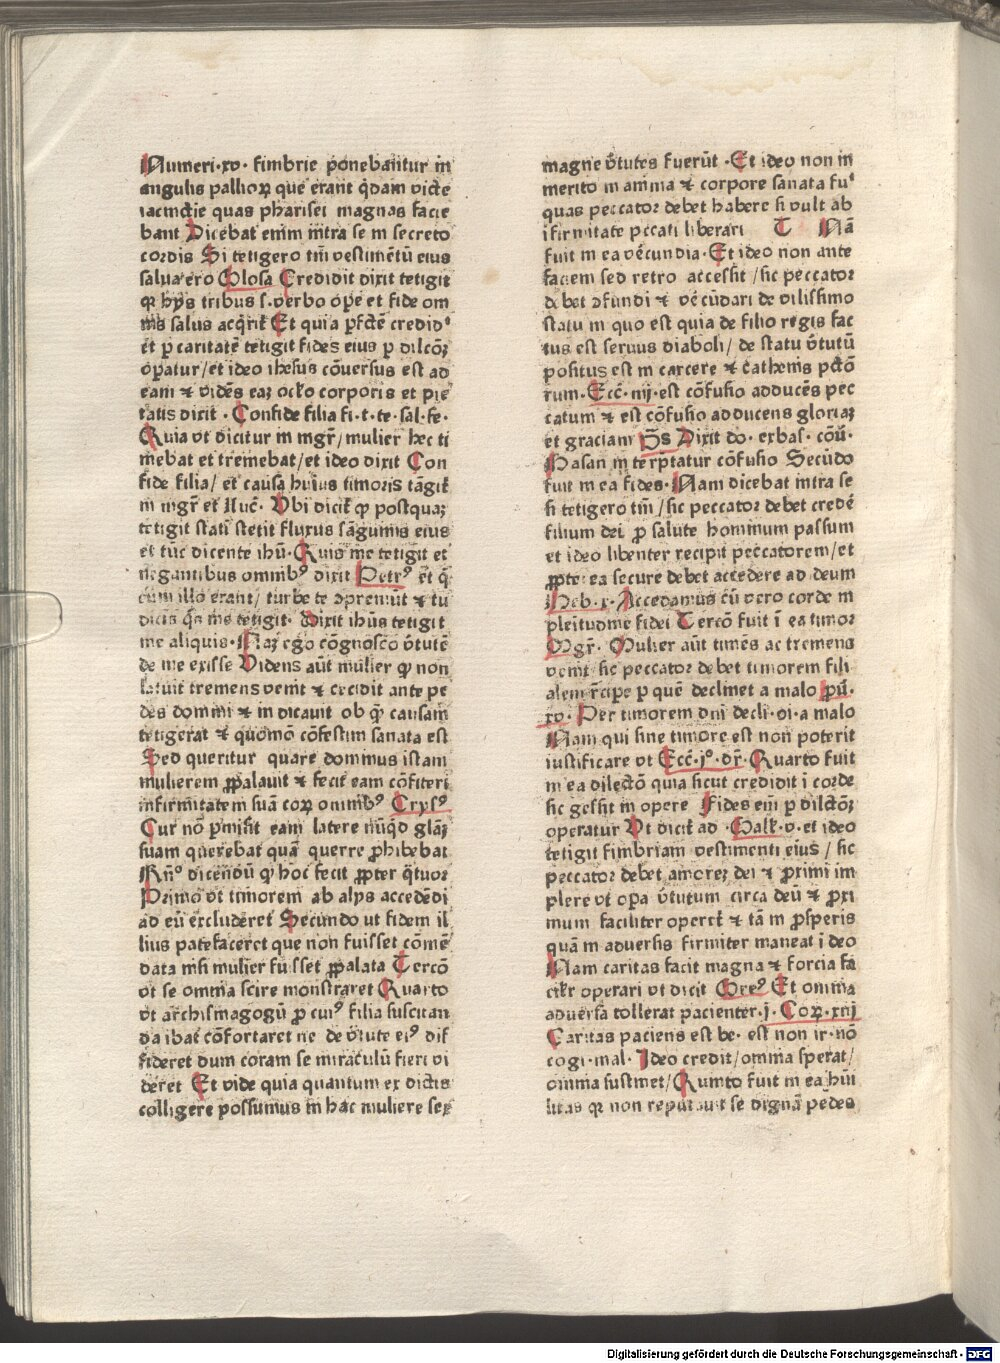 Numeri·xv· fimbrie ponebantur in
angulis pallioꝝ que erant q̄dam victe
iacinctie quas pharisei magnas facie
bant Dicebat enim intra se in secreto
cordis Si tetigero tm̄ vestimētū eius
salua ero Glosa Credidit dixit tetigit
qꝛ hijs tribus s. verbo ope et fide om
nis salus acq̄rit̄ Et quia pfcte credidᵗ
et p caritatē tetigit fides eius p dilcōꝫ
opatur/et ideo ihesus cōuersus est ad
eam ⁊ vidēs eaꝫ oclo corporis et pie
tatis dixit · Confide filia fi·t·te·sal·fe·
Quia vt dicitur in mgr̄/mulier hec ti
mebat et tremebat/et ideo dixit Con
fide filia/ et causa huius timoris tāgit̄
in mgr̄ et Luc̄· Vbi dicit̄ ꝙ postquaꝫ
tetigit stati stetit fluxus sāguinis eius
et tūc dicente ihū· Quis me tetigit et
negantibus omnibꝰ dixit Petrꝰ et q̄
cum illo erant/ turbe te ɔpremūt ⁊ tu
dicis q̄s me tetigit· Dixit ihūs tetigit
me aliquis· Naꝫ ego cōgnosco v̄tutē
de me exisse Videns aūt mulier ꝙ non
latuit tremens venit ⁊ cecidit ante pe
des domini ⁊ indicauit ob q̄ causam
tetigerat ⁊ quōmo cōfestim sanata est
Sed queritur quare dominus istam
mulierem ꝓpalauit ⁊ fecit eam cōfiteri
infirmitatem suā corꝫ omnibꝰ Crysꝰ
Cur nō pmisit eam latere nūq̄d glāꝫ
suam querebat quā querre ꝓhibebat
Rn̄ᵒ dicendū ꝙ hoc fecit ꝓpter q̄tuor
Primo vt timorem ab alijs accededi
ad eū excluderet Secundo ut fidem il
lius patefaceret que non fuisset cōmē
data nisi mulier fuisset ꝓpalata Tercō
vt se omnia scire monstraret Quarto
vt archisinagogū p cuiꝰ filia suscitan
da ibat cōfortaret ne de v̄tute eiꝰ dif
fideret dum coram se miraculū fieri vi
deret Et vide quia quantum ex dictis
colligere possumus in hac muliere sex
magne v̄tutes fuerūt · Et ideo non in
merito in anima ⁊ corpore sanata fuᵗ
quas peccator debet habere si vult ab
ifirmitate pccati liberari T Nā
fuit in ea vēcundia· Et ideo non ante
faciem sed retro accessit/ sic peccator
debet ɔfundi ⁊ vēcūdari de vilissimo
statu in quo est quia de filio regis fac
tus est seruus diaboli/ de statu v̄tutū
positus est in carcere ⁊ cathenis pctō
rum· Ecc̄· iiij·est cōfusio adducēs pec
catum ⁊ est cōfusio adducens gloriaꝫ
et graciam P̄s Dixit do· exbas· cōū·
Basan interptatur cōfusio Secūdo
fuit in ea fides· Nam dicebat intra se
si tetigero tm̄/sic peccator debet credē
filium dei p salute hominum passum
et ideo libenter recipit peccatorem/et
ꝓpterea secure debet accedere ad deum
Heb·x· Accedamus cū vero corde in
pleitudine fidei Tercō fuit ī ea timor
Mgr̄· Mulier aūt timēs ac tremens
venit sic peccator debet timorem fili
alem rcipe p quē declinet a malo pū·
xv· Per timorem dnī decli·oī·a malo
Nam qui sine timore est non poterit
iustificare vt Ecc̄·jᵒ·dr̄· Quarto fuit
in ea dilectō quia sicut credidit ī corde
sic gessit in opere Fides eni p dilctōꝫ
operatur Vt dicit̄ ad · Galł·v·et ideo
tetigit fimbriam vestimenti eius / sic
peccator debet amoreꝫ dei ⁊ ꝓximi im
plere vt opa v̄tutum circa deū ⁊ ꝓxi
mum faciliter operet̄ ⁊ tā in ꝓsperis
quā in aduersis firmiter maneat ī deo
Nam caritas facit magna ⁊ forcia fa
cilr̄ operari vt dicit Greꝰ Et omnia
aduersa tollerat pacienter·j· Corꝫ·xiij
Caritas paciens est be· est non ir·nō
cogi·mal· Ideo credit/omnia sperat/
omnia sustinet/Quinto fuit in ea hūi
litas qꝛ non reputauit se dignā pedes
Digitalisierung gefördert durch die Deutsche Forschungsgemeinschaft - DFG